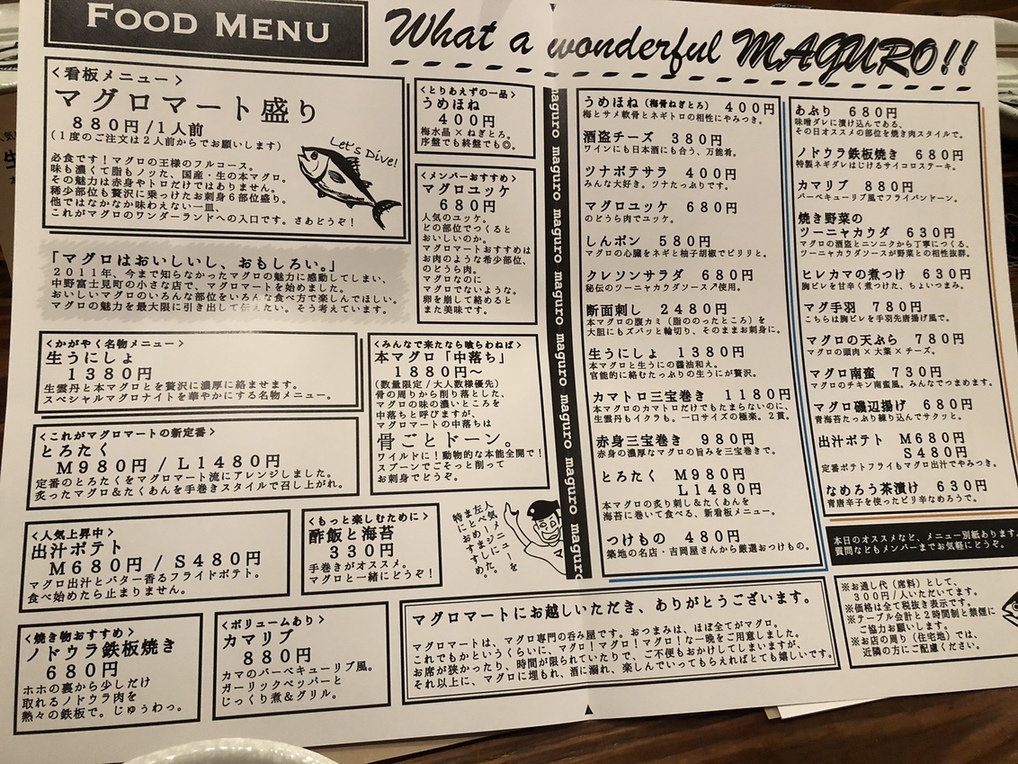 FOOD MENU
What a wonderful MAGURO!!
<看板メニュー>
マグロマート盛り
880円/1人前
(1度のご注文は2人前からでお願いします)
必食です!マグロの王様のフルコース。
味も濃くて脂もノッた、国産・生の本マグロ。
その魅力は赤身やトロだけではありません。
稀少部位も贅沢に乗っけたお刺身6部位盛り。
他ではなかなか味わえない一皿、
これがマグロのワンダーランドへの入口です。さあどうぞ!
Let's Dive!
「マグロはおいしいし、おもしろい。」
2011年、今まで知らなかったマグロの魅力に感動してしまい、
中野富士見町の小さな店で、マグロマートを始めました。
おいしいマグロのいろんな部位をいろんな食べ方で楽しんでほしい。
マグロの魅力を最大限に引き出して伝えたい。そう考えています。
<かがやく名物メニュー>
生うにしょ
1380円
生雲丹と本マグロとを贅沢に濃厚に絡ませます。
スペシャルマグロナイトを華やかにする名物メニュー。
<これがマグロマートの新定番>
とろたく
M980円/L1480円
定番のとろたくをマグロマート流にアレンジしました。
炙ったマグロ&たくあんを手巻きスタイルで召し上がれ。
<人気上昇中>
出汁ポテト
M680円/S480円
マグロ出汁とバター香るフライドポテト。
食べ始めたら止まりません。
<焼き物おすすめ>
ノドウラ鉄板焼き
680円
ホホの裏から少しだけ
取れるノドウラ肉を
熱々の鉄板で。じゅうわっ。
<とりあえずの一品>
うめほね
400円
梅水晶×ねぎとろ。
序盤でも終盤でも◎。
<メンバーおすすめ>
マグロユッケ
680円
人気のユッケ。
どの部位でつくると
おいしいのか。
マグロマートおすすめは
お肉のような希少部位、
のどうら肉。
マグロなのに
マグロでないような。
卵を崩して絡めると
また美味です。
<みんなで来たなら喰らわねば>
本マグロ「中落ち」
1880円〜
(数量限定/大人数様優先)
骨の周りから削り落とした、
マグロの味の濃いところを
中落ちと呼びますが、
マグロマートの中落ちは
骨ごとドーン。
ワイルドに!動物的な本能全開で!
スプーンでごそっと削って
お刺身でどうぞ。
<もっと楽しむために>
酢飯と海苔
330円
手巻きがオススメ。
マグロと一緒にどうぞ!
<ボリュームあり>
カマリブ
880円
カマのバーベキューリブ風。
ガーリックペッパーと
じっくり煮&グリル。
maguro maguro maguro maguro maguro maguro maguro maguro
うめほね(梅骨ねぎとろ) 400円
梅とサメ軟骨とネギトロの相性にやみつき。
酒盗チーズ 380円
ワインにも日本酒にも合う、万能肴。
ツナポテサラ 400円
みんな大好き。ツナたっぷりです。
マグロユッケ 680円
のどうら肉でユッケ。
しんポン 580円
マグロの心臓をネギと柚子胡椒でピリリと。
クレソンサラダ 680円
秘伝のツーニャカウダソース使用。
断面刺し 2480円
本マグロの腹カミ(脂ののったところ)を
大胆にもズバッと輪切り、そのままお刺身に。
生うにしょ 1380円
本マグロと生うにの醤油和え。
官能的に絡むたっぷりの生うにが贅沢。
カマトロ三宝巻き 1180円
本マグロのカマトロだけでもたまらないのに、
生雲丹もイクラも。一口サイズの極楽。2貫。
赤身三宝巻き 980円
赤身の濃厚なマグロの旨みを三宝巻きで。
とろたく M980円
L1480円
本マグロの炙り刺し&たくあんを
海苔に巻いて食べる、新看板メニュー。
つけもの 480円
築地の名店・吉岡屋さんから厳選おつけもの。
あぶり 680円
味噌ダレに漬け込んである、
その日オススメの部位を焼き肉スタイルで。
ノドウラ鉄板焼き 680円
特製ネギダレはじけるサイコロステーキ。
カマリブ 880円
バーベキューリブ風でフライパンドーン。
焼き野菜の
ツーニャカウダ 630円
マグロの酒盗とニンニクから丁寧につくる、
ツーニャカウダソースが野菜との相性抜群。
ヒレカマの煮つけ 630円
胸ビレを甘辛く煮つけた、ちょいつまみ。
マグ手羽 780円
こちらは胸ビレを手羽先唐揚げ風で。
マグロの天ぷら 780円
マグロの頭肉×大葉×チーズ。
マグロ南蛮 730円
マグロのチキン南蛮風。みんなでつまめます。
マグロ磯辺揚げ 680円
青海苔たっぷり練り込んでサクッと。
出汁ポテト M680円
S480円
定番ポテトフライもマグロ出汁でやみつき。
なめろう茶漬け 630円
青唐辛子を使ったピリ辛なめろうで。
本日のオススメなど、メニュー別紙あります。
質問などもメンバーまでお気軽にどうぞ。
マグロマートにお越しいただき、ありがとうございます。
マグロマートは、マグロ専門の呑み屋です。おつまみは、ほぼ全てがマグロ。
これでもかというくらいに、マグロ!マグロ!マグロ!な一晩をご用意しました。
お席が狭かったり、時間が限られていたりで、ご不便もおかけしてしまいますが、
それ以上に、マグロに埋もれ、酒に溺れ、楽しんでいってもらえればとても嬉しいです。
※お通し代(席料)として、
300円/人いただいてます。
※価格は全て税抜き表示です。
※テーブル会計と2時間制と禁煙に
ご協力お願いします。
※お店の周り(住宅地)では、
近隣の方にご配慮ください。